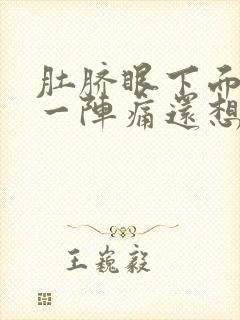 肚脐眼下而
一陣痛還想
王巍毅